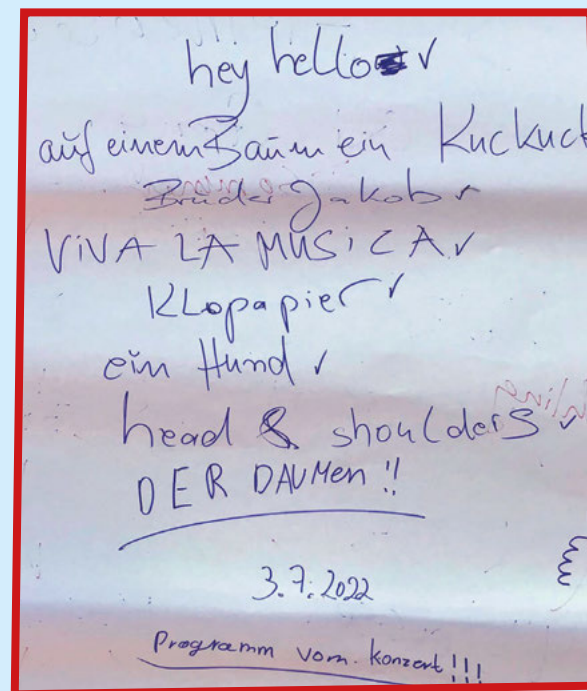 hey hello ✓
auf einem Baum ein Kuckuck
Bruder Jakob ✓
VIVA LA MUSICA ✓
KLopapier ✓
ein Hund ✓
head & shoulders ✓
DER DAUMen!!
3.7.2022
Programm vom. Konzert!!!